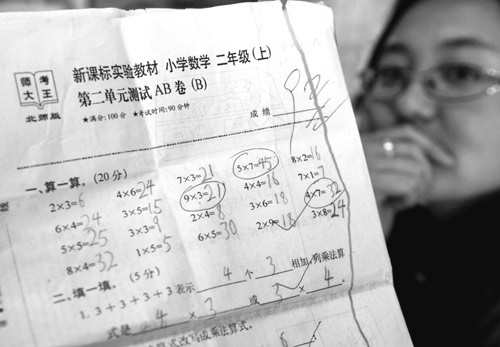 师大 考王
北师版
新课标实验教材 小学数学 二年级(上)
第二单元测试 AB 卷 (B)
★满分:100分 ★考试时间:90分钟
成绩
一、算一算。(20分)
2×3=6 4×6=24 7×3=21 5×7=45 8×2=16
6×4=24 3×5=15 9×3=21 4×4=16 7×1=7
5×5=25 3×3=9 2×4=8 3×6=18 4×7=32
8×4=32 1×5=5 6×5=30 2×9=18 3×8=24
二、填一填。(5分)
1. 3+3+3+3表示 4 个 3 相加,列乘法算
式是 4 × 3 或 3 × 4 .
式改写成乘法算式。